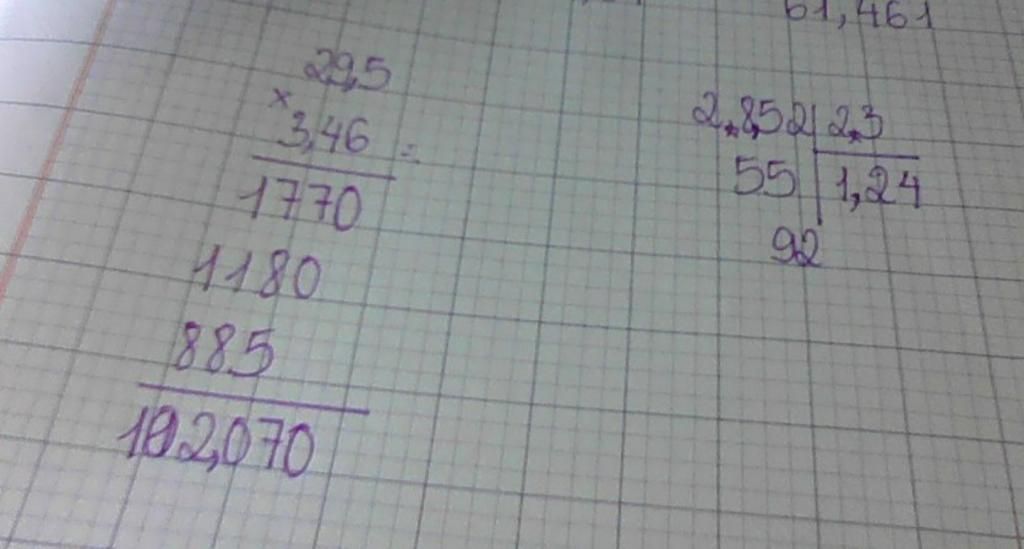 61,461
29,5
×
3,46 =
1770
1180
885
102,070
2,852 2,3
55 1,24
92